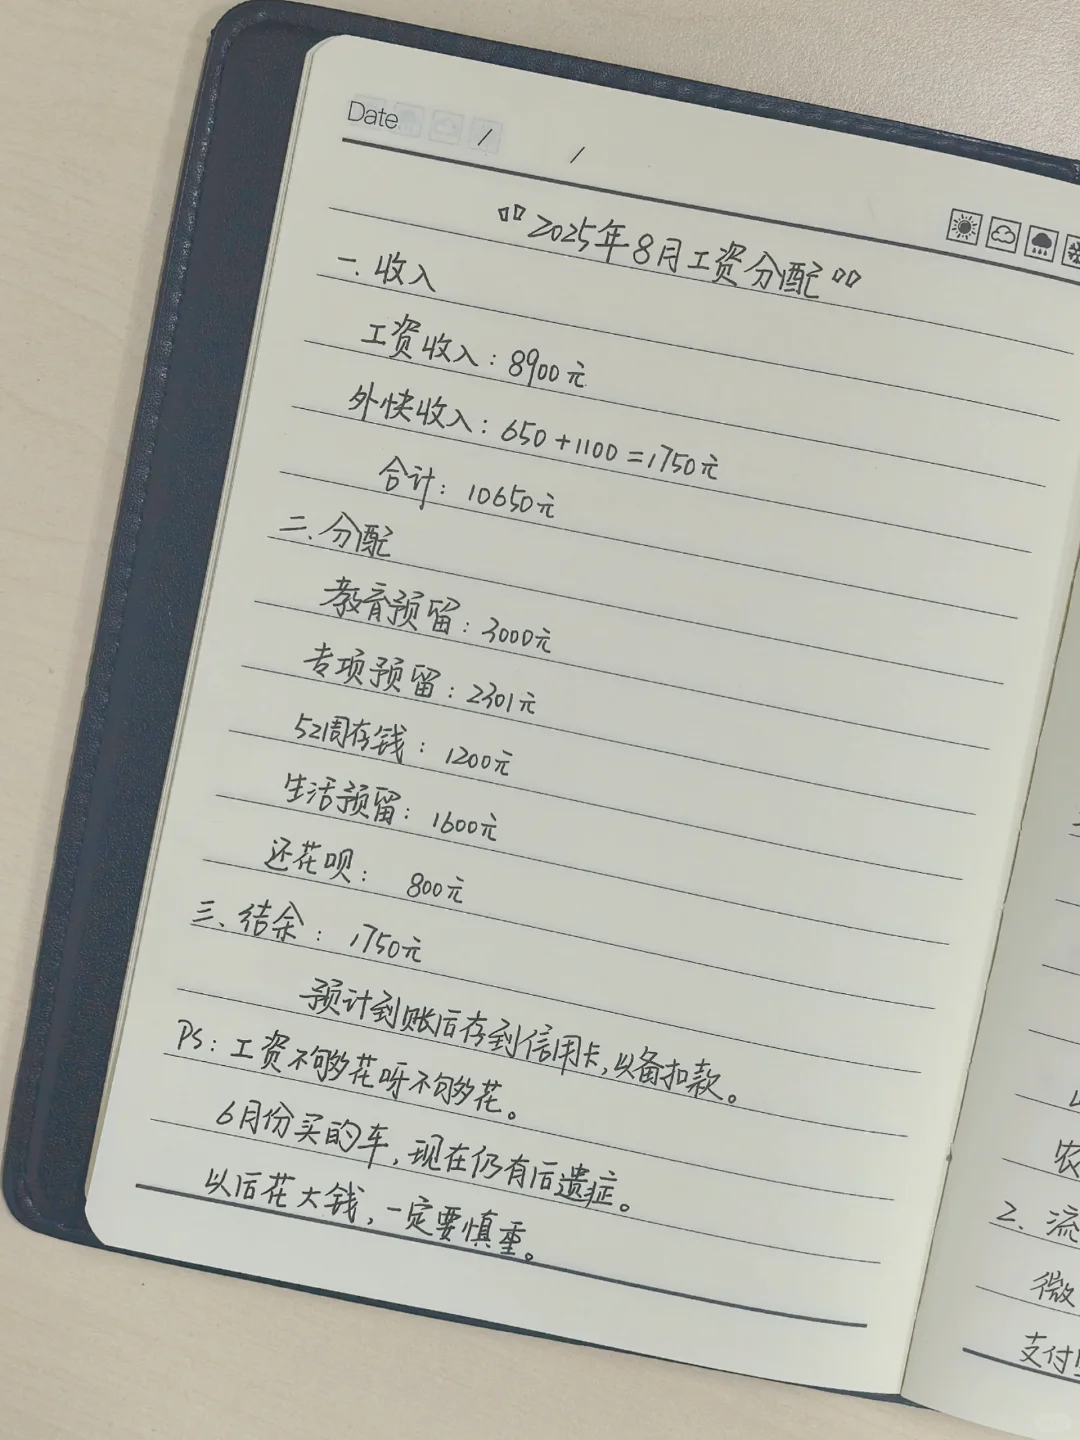 Date / /
“2025年8月工资分配”
一.收入
工资收入:8900元
外快收入:650+1100=1750元
合计:10650元
二、分配
教育预留:3000元
专项预留:2301元
52周存钱:1200元
生活预留:1600元
还花呗: 800元
三、结余:1750元
预计到账后存到信用卡,以备扣款。
PS:工资不够花呀不够花。
6月份买的车,现在仍有后遗症。
以后花大钱,一定要慎重。
农
2、流
微
支付